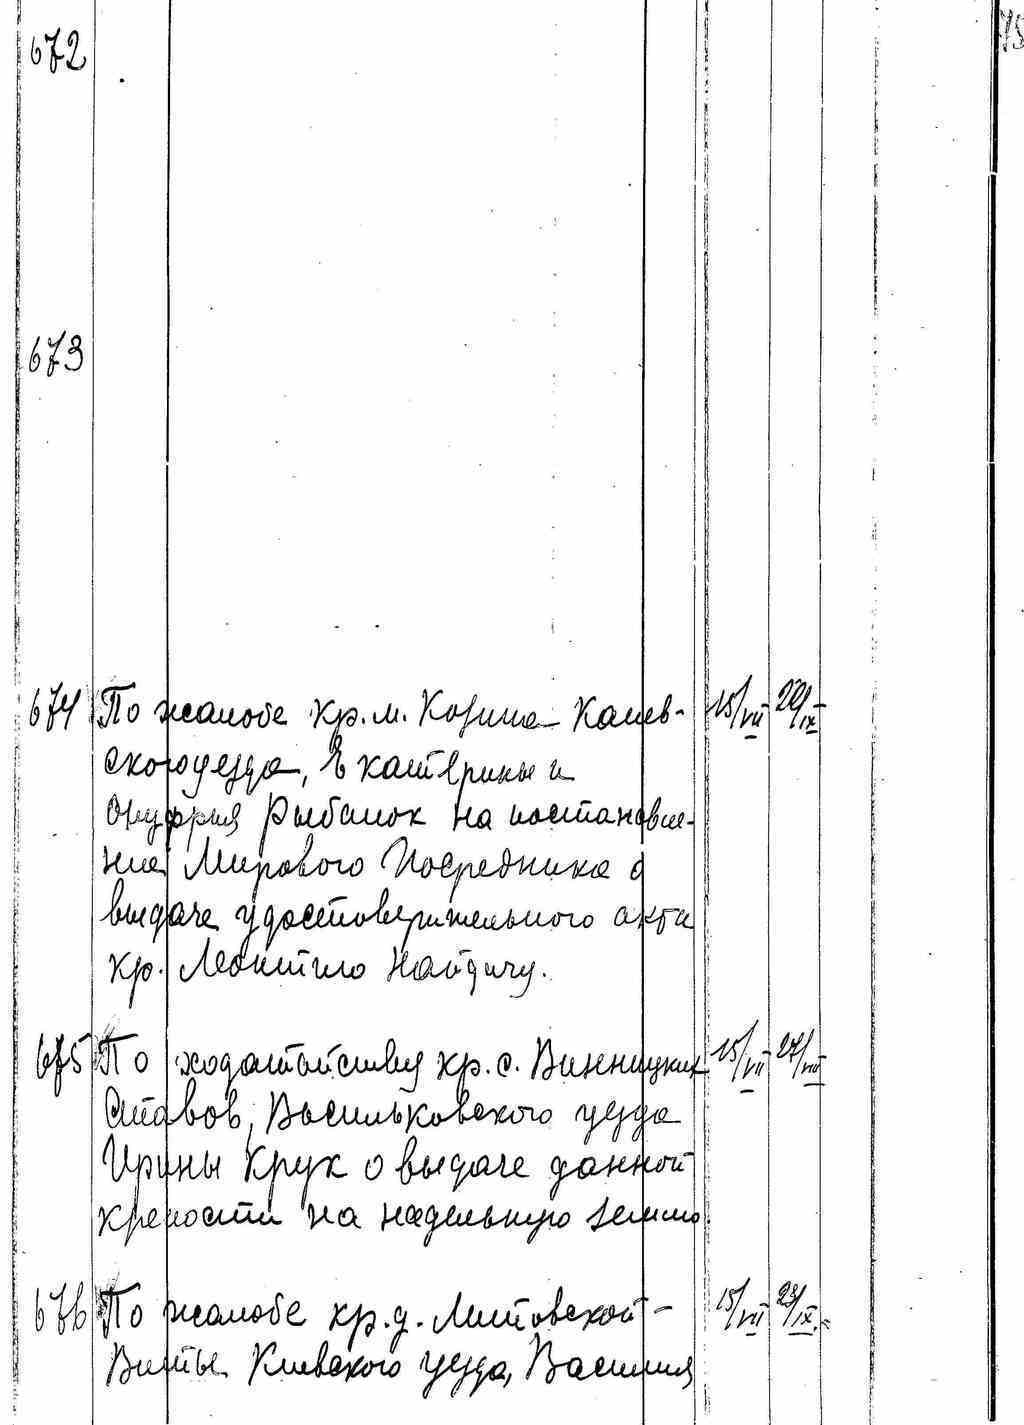 75
672
673
674 По жалобе кр. м. Козина Канев- 15/VII 20/IX
ского уезда, Екатерины и
Онуфрия Рыбалок на постановле-
ние Мирового Посредника о
выдаче удостоверительного акта
кр. Леонтию Найдичу.
675 По ходатайству кр. с. Винницких 15/VII 27/VIII
Ставов, Васильковского уезда
Ирины Крук о выдаче данной
крепости на надельную землю.
676 По жалобе кр. д. Литовской- 15/VII 23/IX
Виты Киевского уезда, Василия